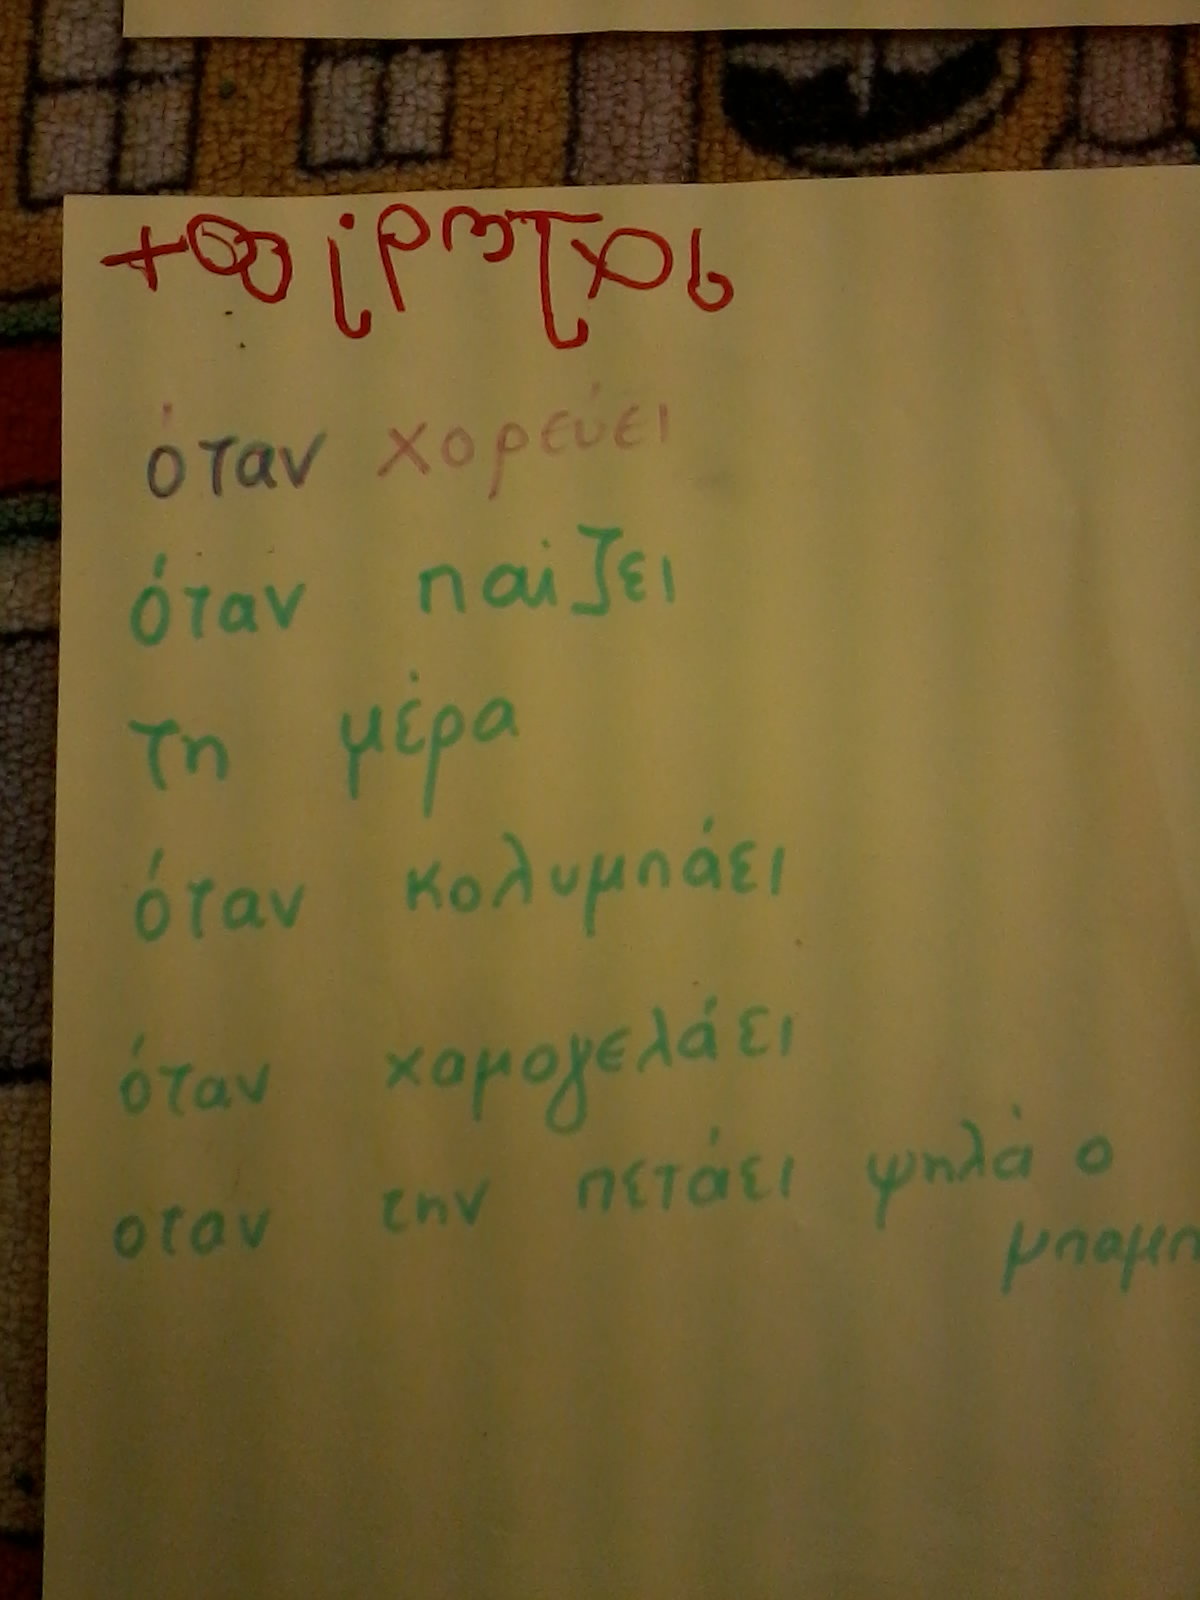 χαίρεται
όταν χορεύει
όταν παίζει
τη μέρα
όταν κολυμπάει
όταν χαμογελάει
οταν την πετάει ψηλά ο
μπαμπ